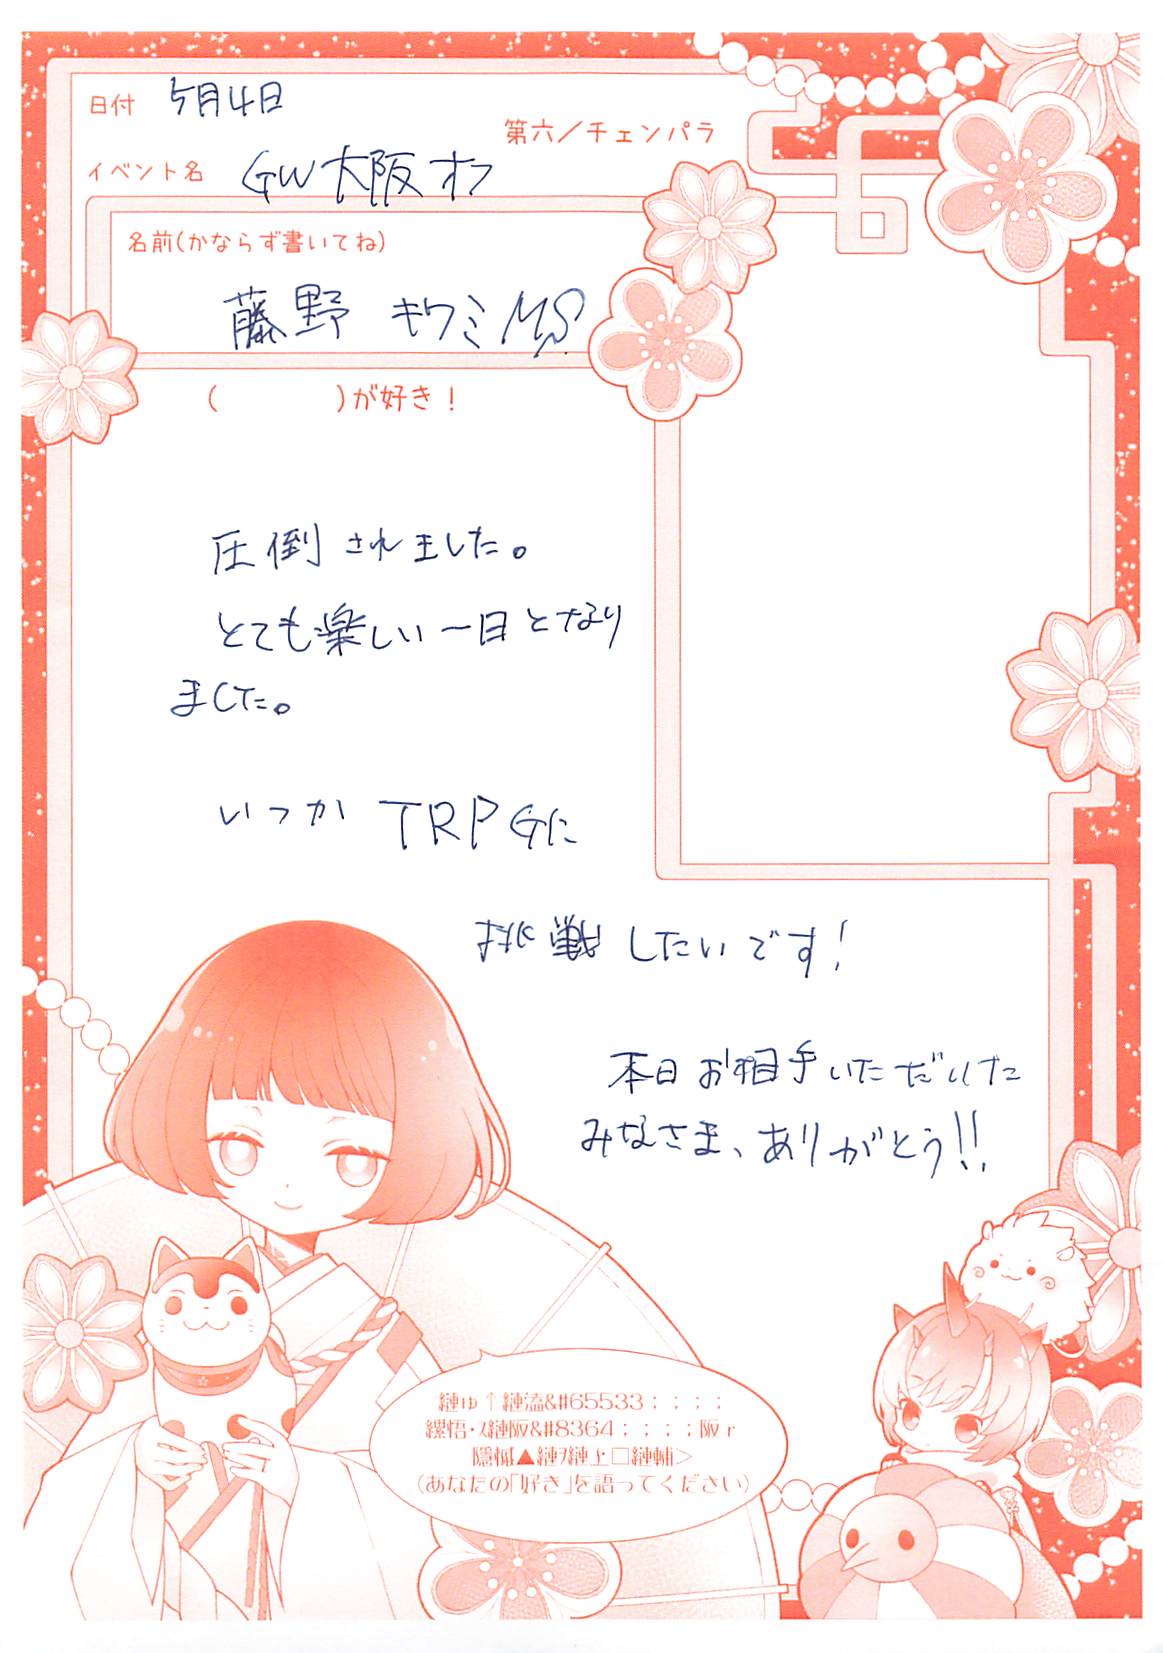 日付 5月4日
第六／チェンパラ
イベント名 GW大阪オフ
名前(かならず書いてね)
藤野 キワミMS
( )が好き！
圧倒されました。
とても楽しい一日となり
ました。
いつかTRPGに
挑戦したいです！
本日お相手いただいた
みなさま、ありがとう!!
縺ゅ↑縺溘&#65533；；；；
縲悟･ｽ縺阪&#8364；；；；阪ｒ
隱槭▲縺ｦ縺上□縺輔＞
(あなたの「好き」を語ってください)